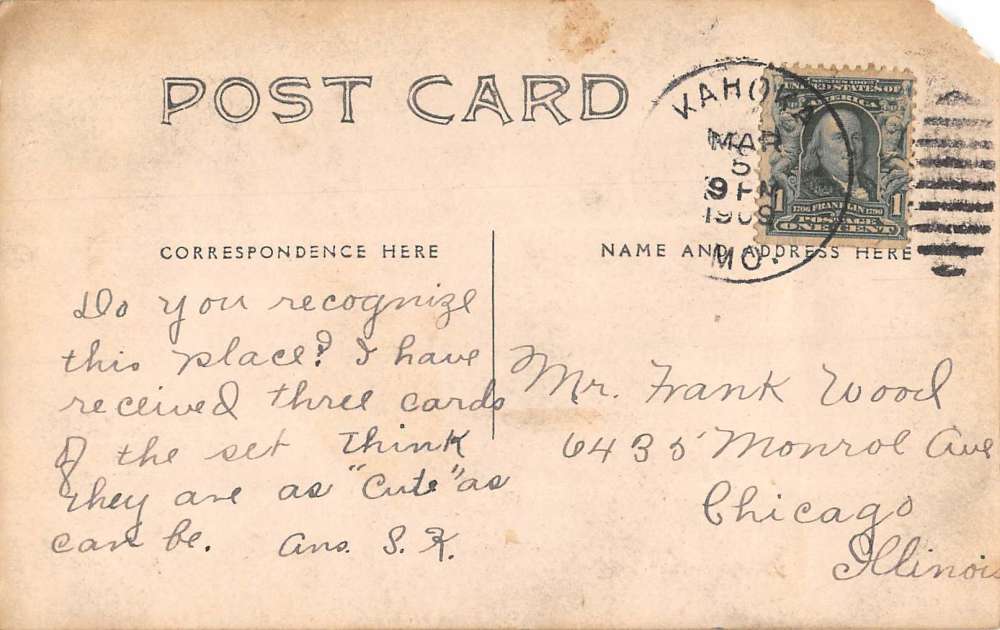 POST CARD
KAHOKA
MAR
5
9 PM
1909
MO.
SERIES 1902
UNITED STATES OF
AMERICA
1 1
1706 FRANKLIN 1790
POSTAGE
ONE CENT
CORRESPONDENCE HERE
NAME AND ADDRESS HERE
Do you recognize
this place? I have
received three cards
of the set Think
they are as "Cute" as
can be. Ans. S. K.
Mr. Frank Wood
6435 Monroe Ave
Chicago
Illinois